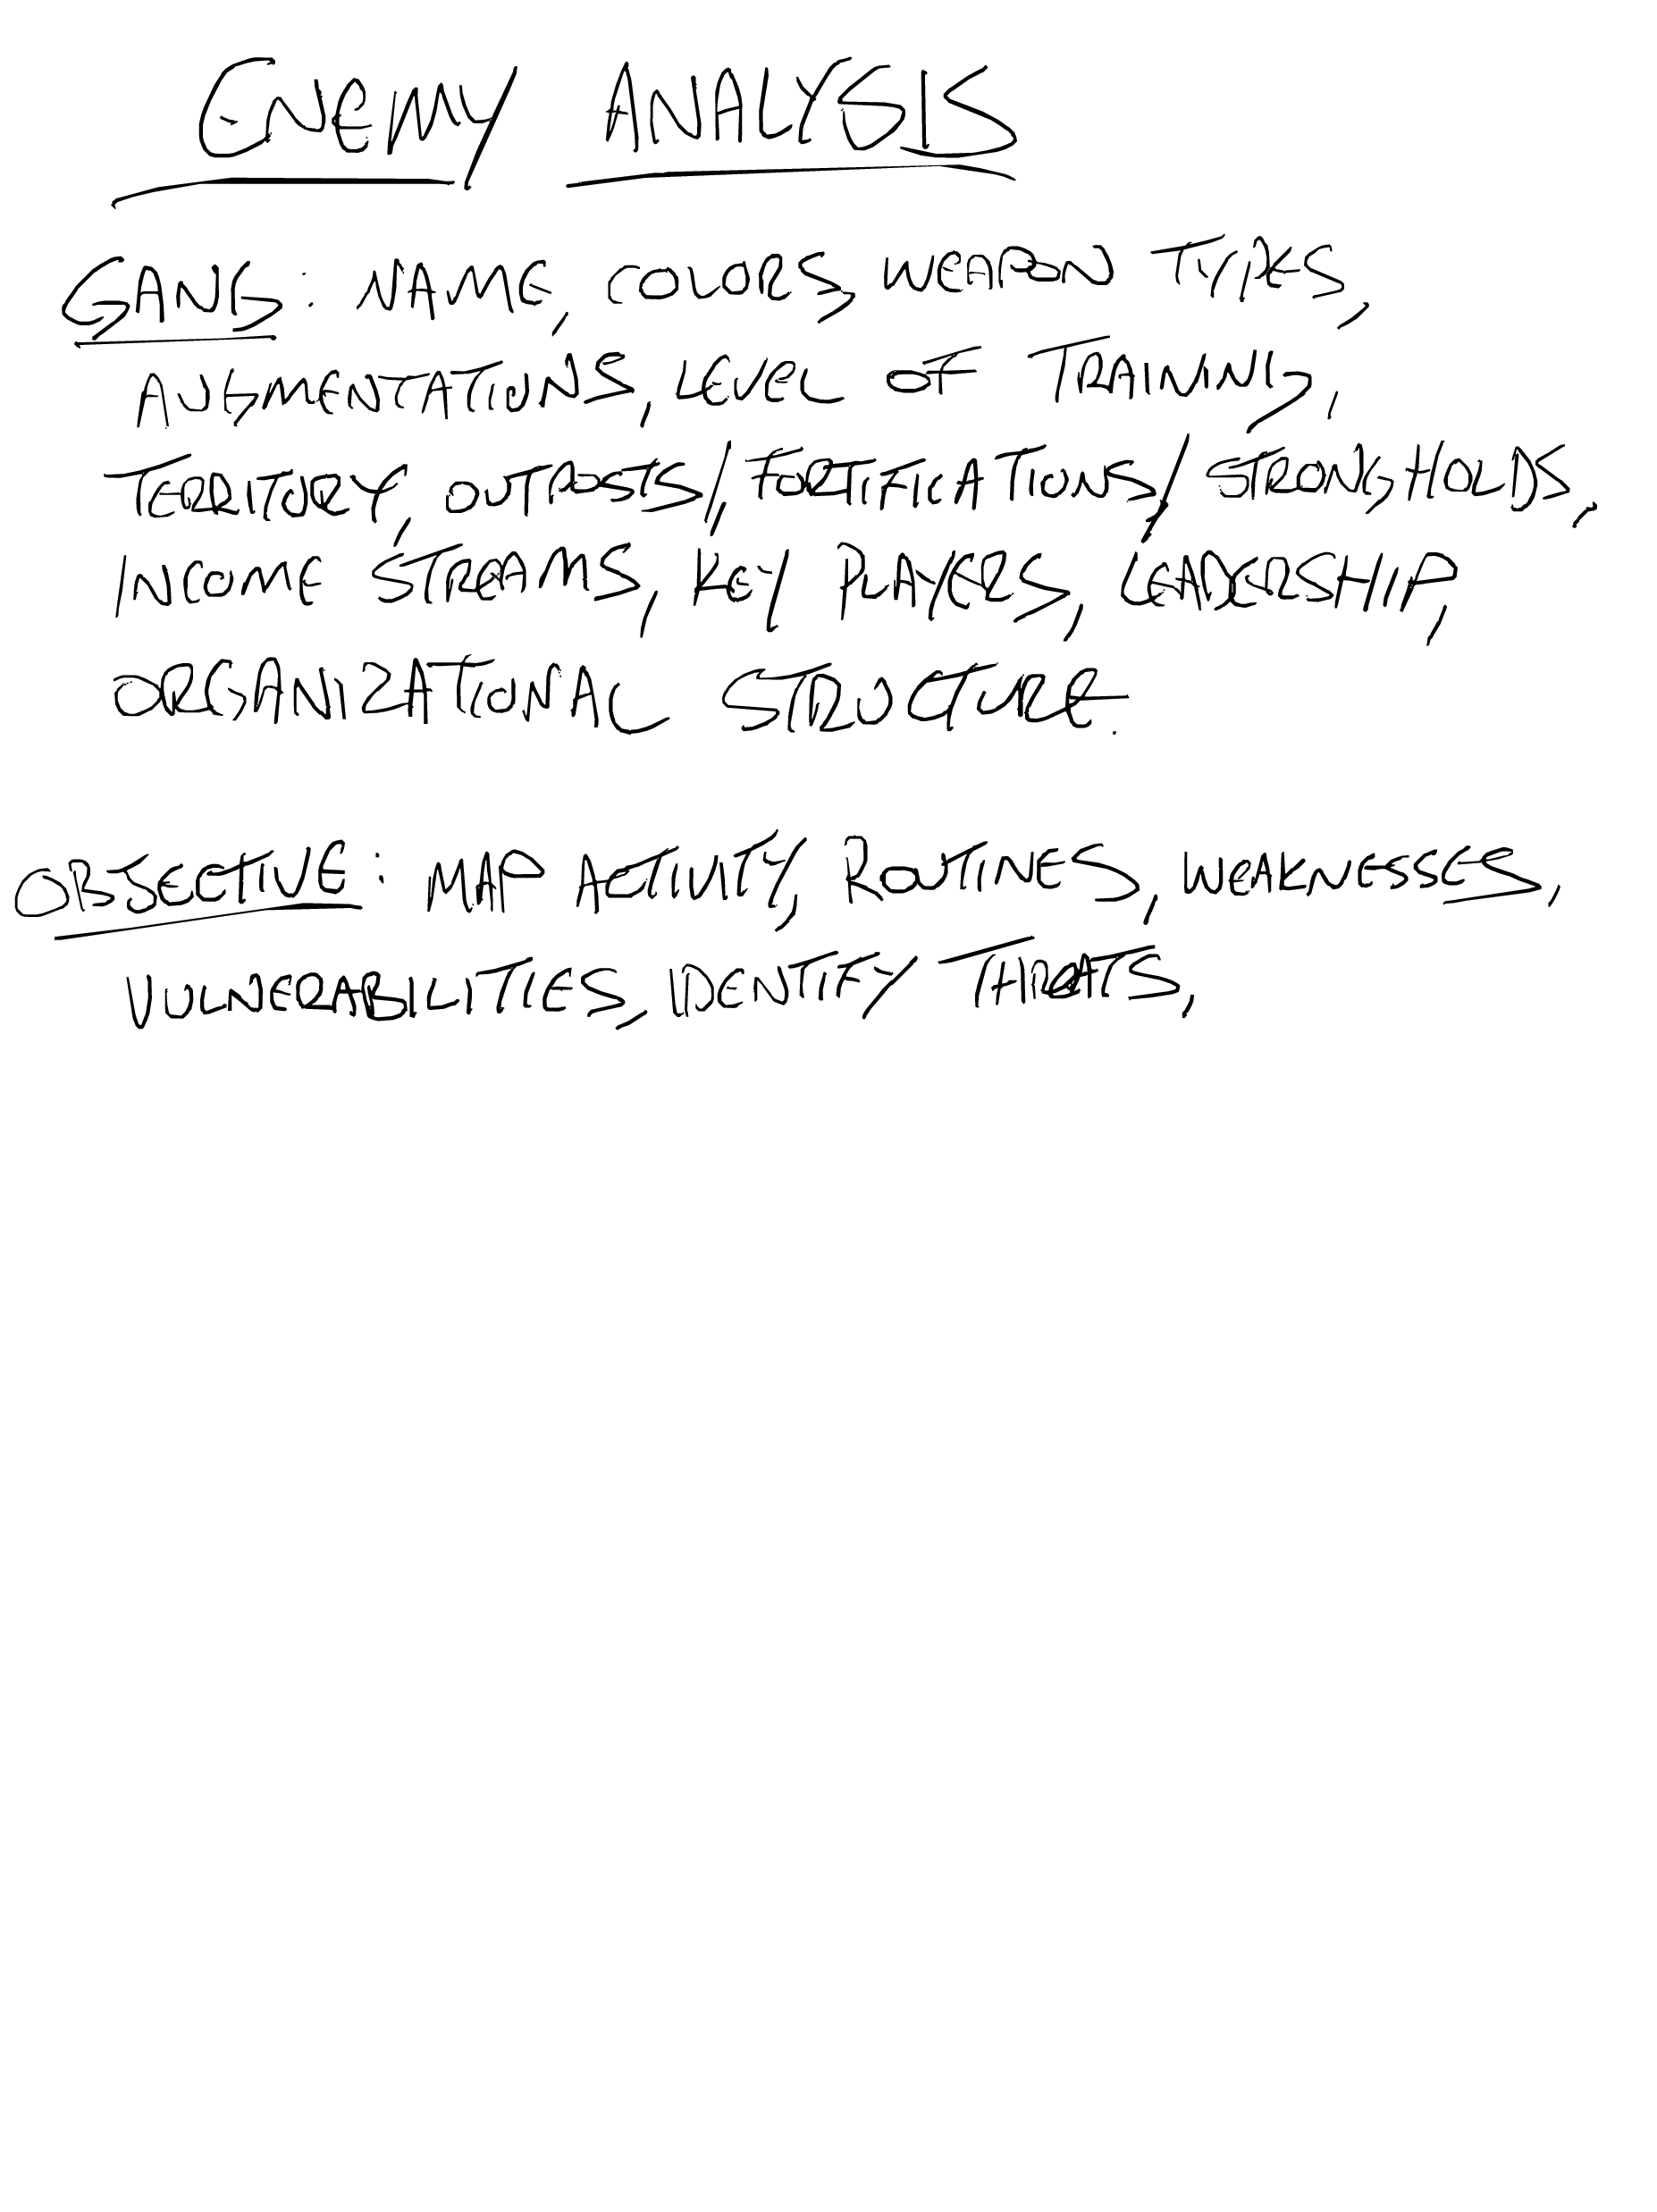 ENEMY ANALYSIS
GANG: NAME, COLORS, WEAPON TYPES,
AUGMENTATIONS, LEVEL OF TRAINING,
TERRITORY, OUTPOSTS/FORTIFICATIONS/STRONGHOLDS,
INCOME STREAMS, KEY PLAYERS, LEADERSHIP,
ORGANIZATIONAL STRUCTURE.
OBJECTIVE: MAP ACTIVITY, ROUTINES, WEAKNESSES,
VULNERABILITIES, IDENTIFY THREATS,